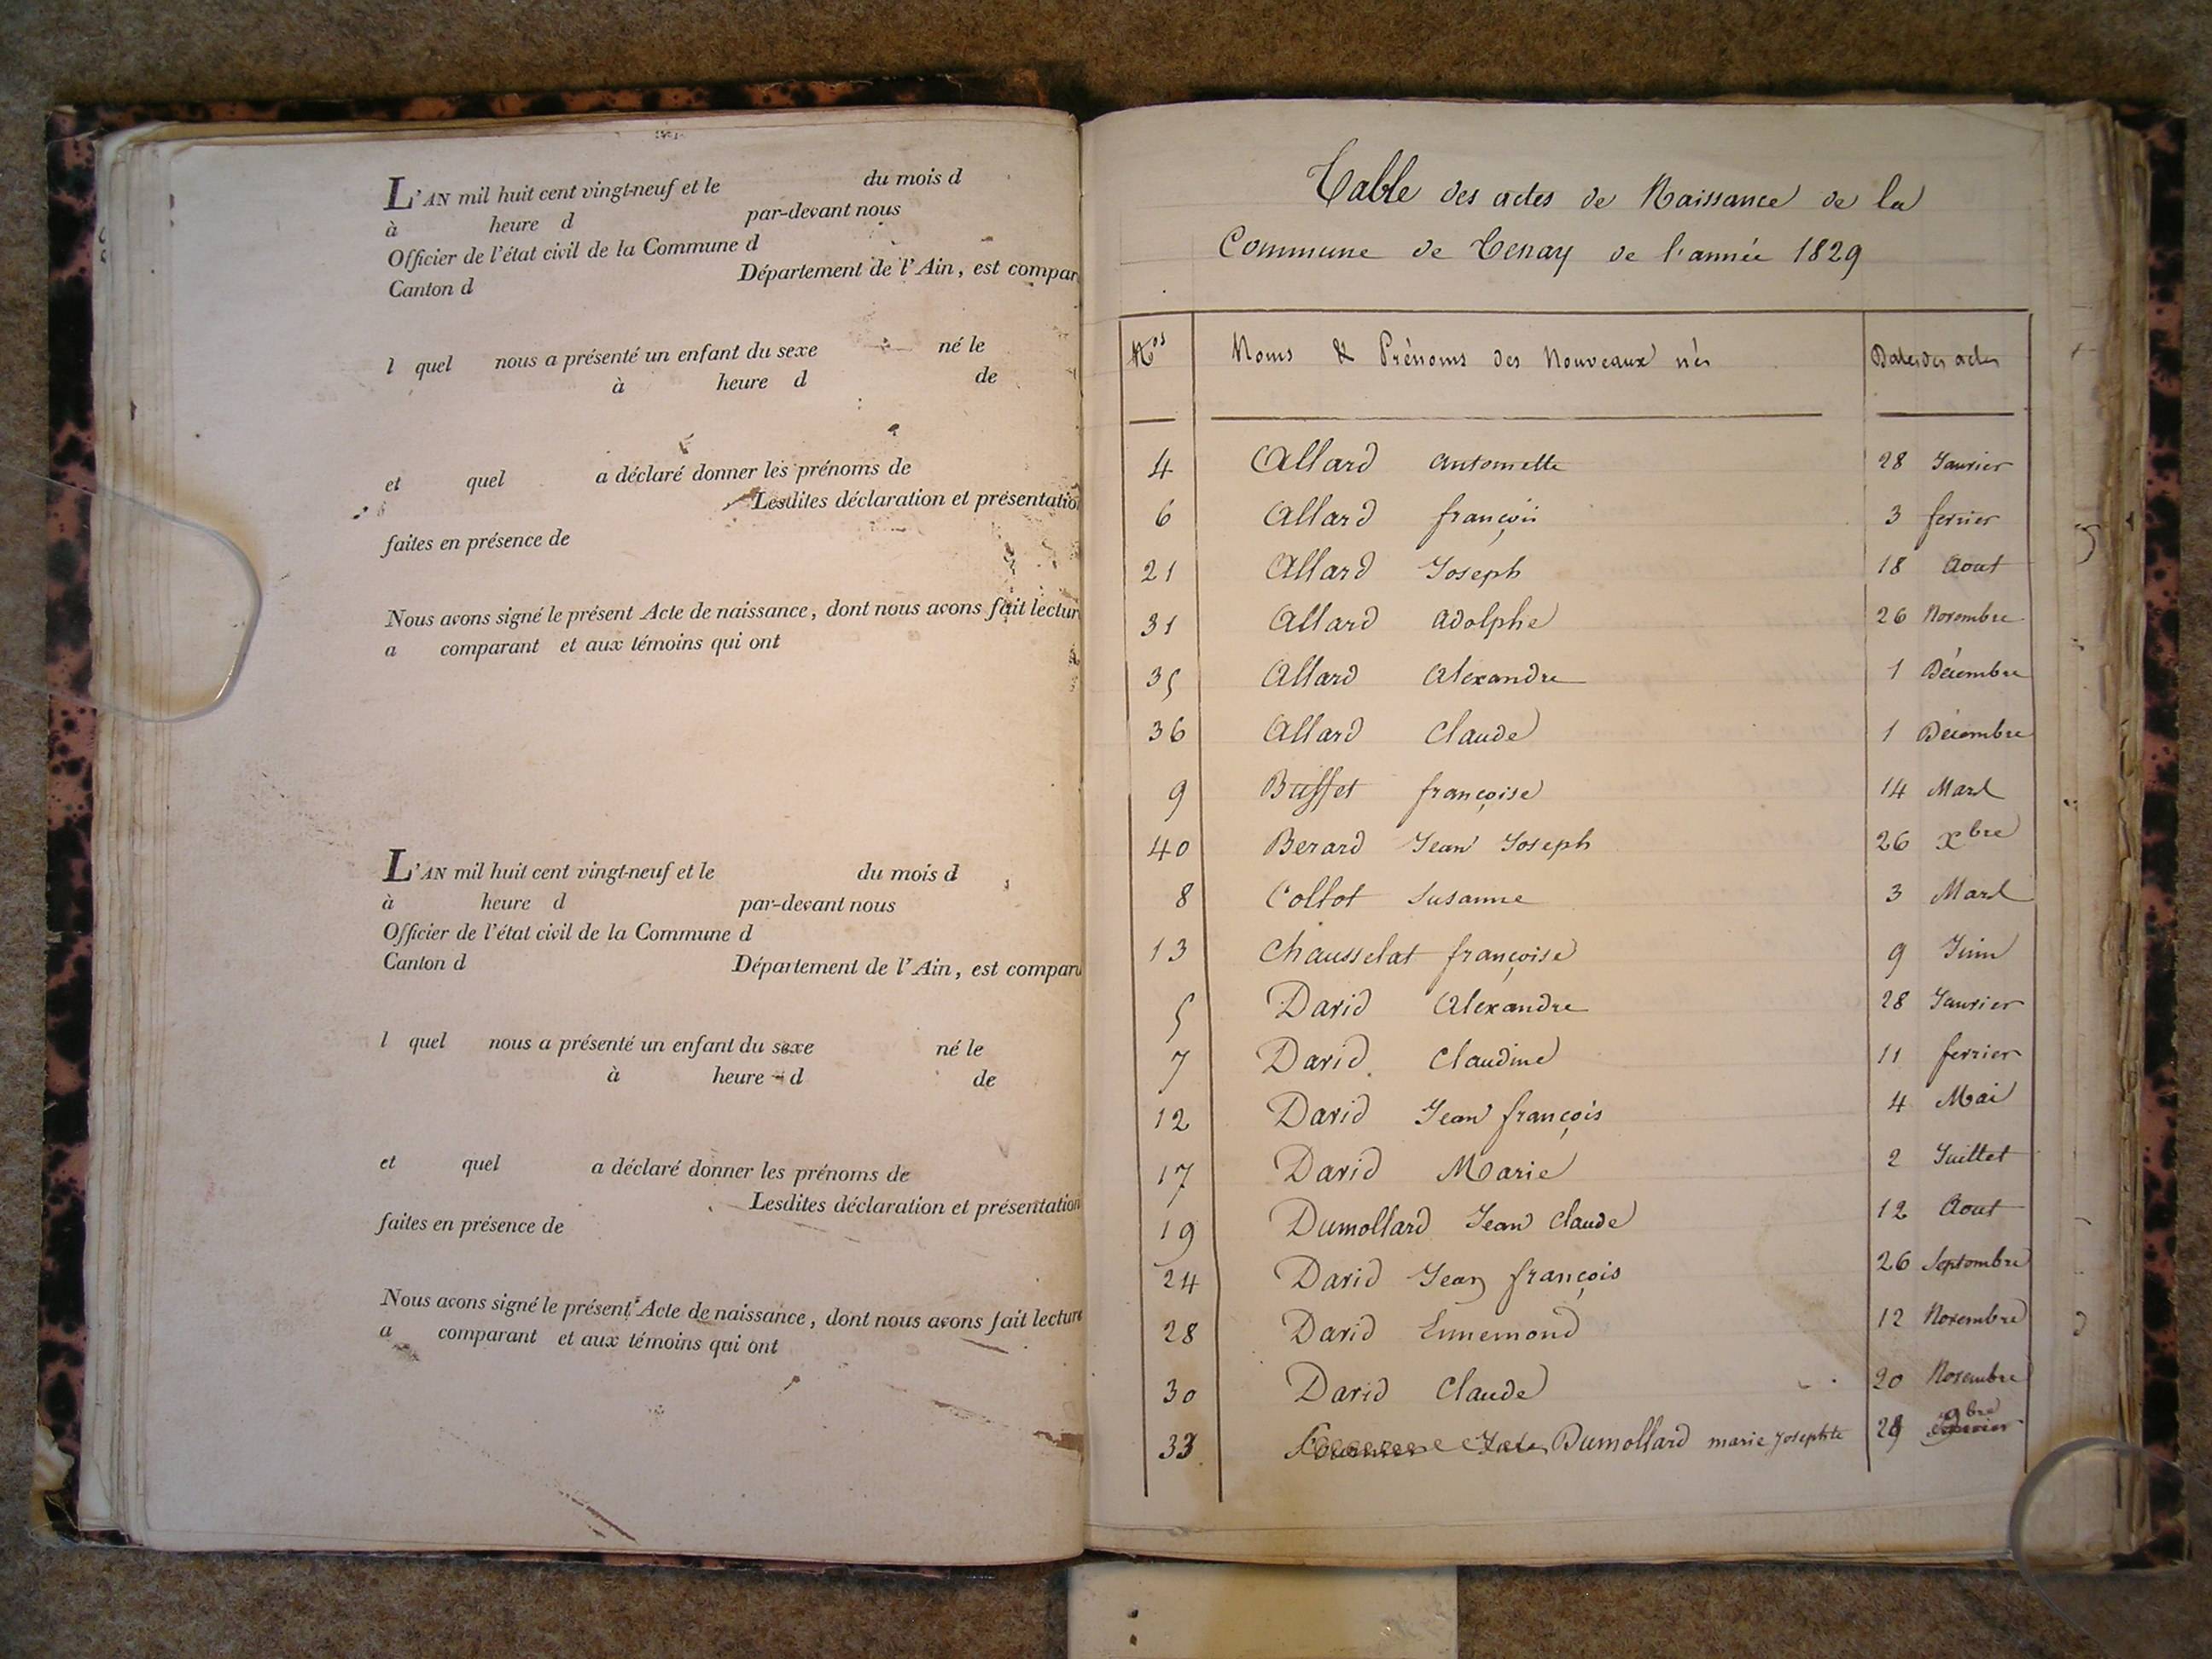 L'AN mil huit cent vingt-neuf et le du mois d
à heure d par-devant nous
Officier de l'état civil de la Commune d
Canton d Département de l'Ain, est compar
l quel nous a présenté un enfant du sexe né le
à heure d de
et quel a déclaré donner les prénoms de
Lesdites déclaration et présentatio
faites en présence de
Nous avons signé le présent Acte de naissance, dont nous avons fait lectur
a comparant et aux témoins qui ont
L'AN mil huit cent vingt-neuf et le du mois d
à heure d par-devant nous
Officier de l'état civil de la Commune d
Canton d Département de l'Ain, est comparu
l quel nous a présenté un enfant du sexe né le
à heure d de
et quel a déclaré donner les prénoms de
Lesdites déclaration et présentation
faites en présence de
Nous avons signé le présent Acte de naissance, dont nous avons fait lecture
a comparant et aux témoins qui ont
Table des actes de Naissance de la
Commune de Tenay de l'année 1829
Nos Noms & Prénoms des Nouveaux nés Dates des actes
4 Allard Antoinette 28 Janvier
6 Allard françois 3 fevrier
21 Allard Joseph 18 Aout
31 Allard Adolphe 26 Novembre
35 Allard Alexandre 1 Décembre
36 Allard Claude 1 Décembre
9 Buffet françoise 14 Mars
40 Berard Jean Joseph 26 xbre
8 Collot Susanne 3 Mars
13 Chausselat françoise 9 Juin
5 David Alexandre 28 Janvier
7 David Claudine 11 fevrier
12 David Jean françois 4 Mai
17 David Marie 2 Juillet
19 Dumollard Jean Claude 12 Aout
24 David Jean françois 26 Septembre
28 David Ennemond 12 Novembre
30 David Claude 20 Novembre
33 Dumollard marie Josephte 29 9bre